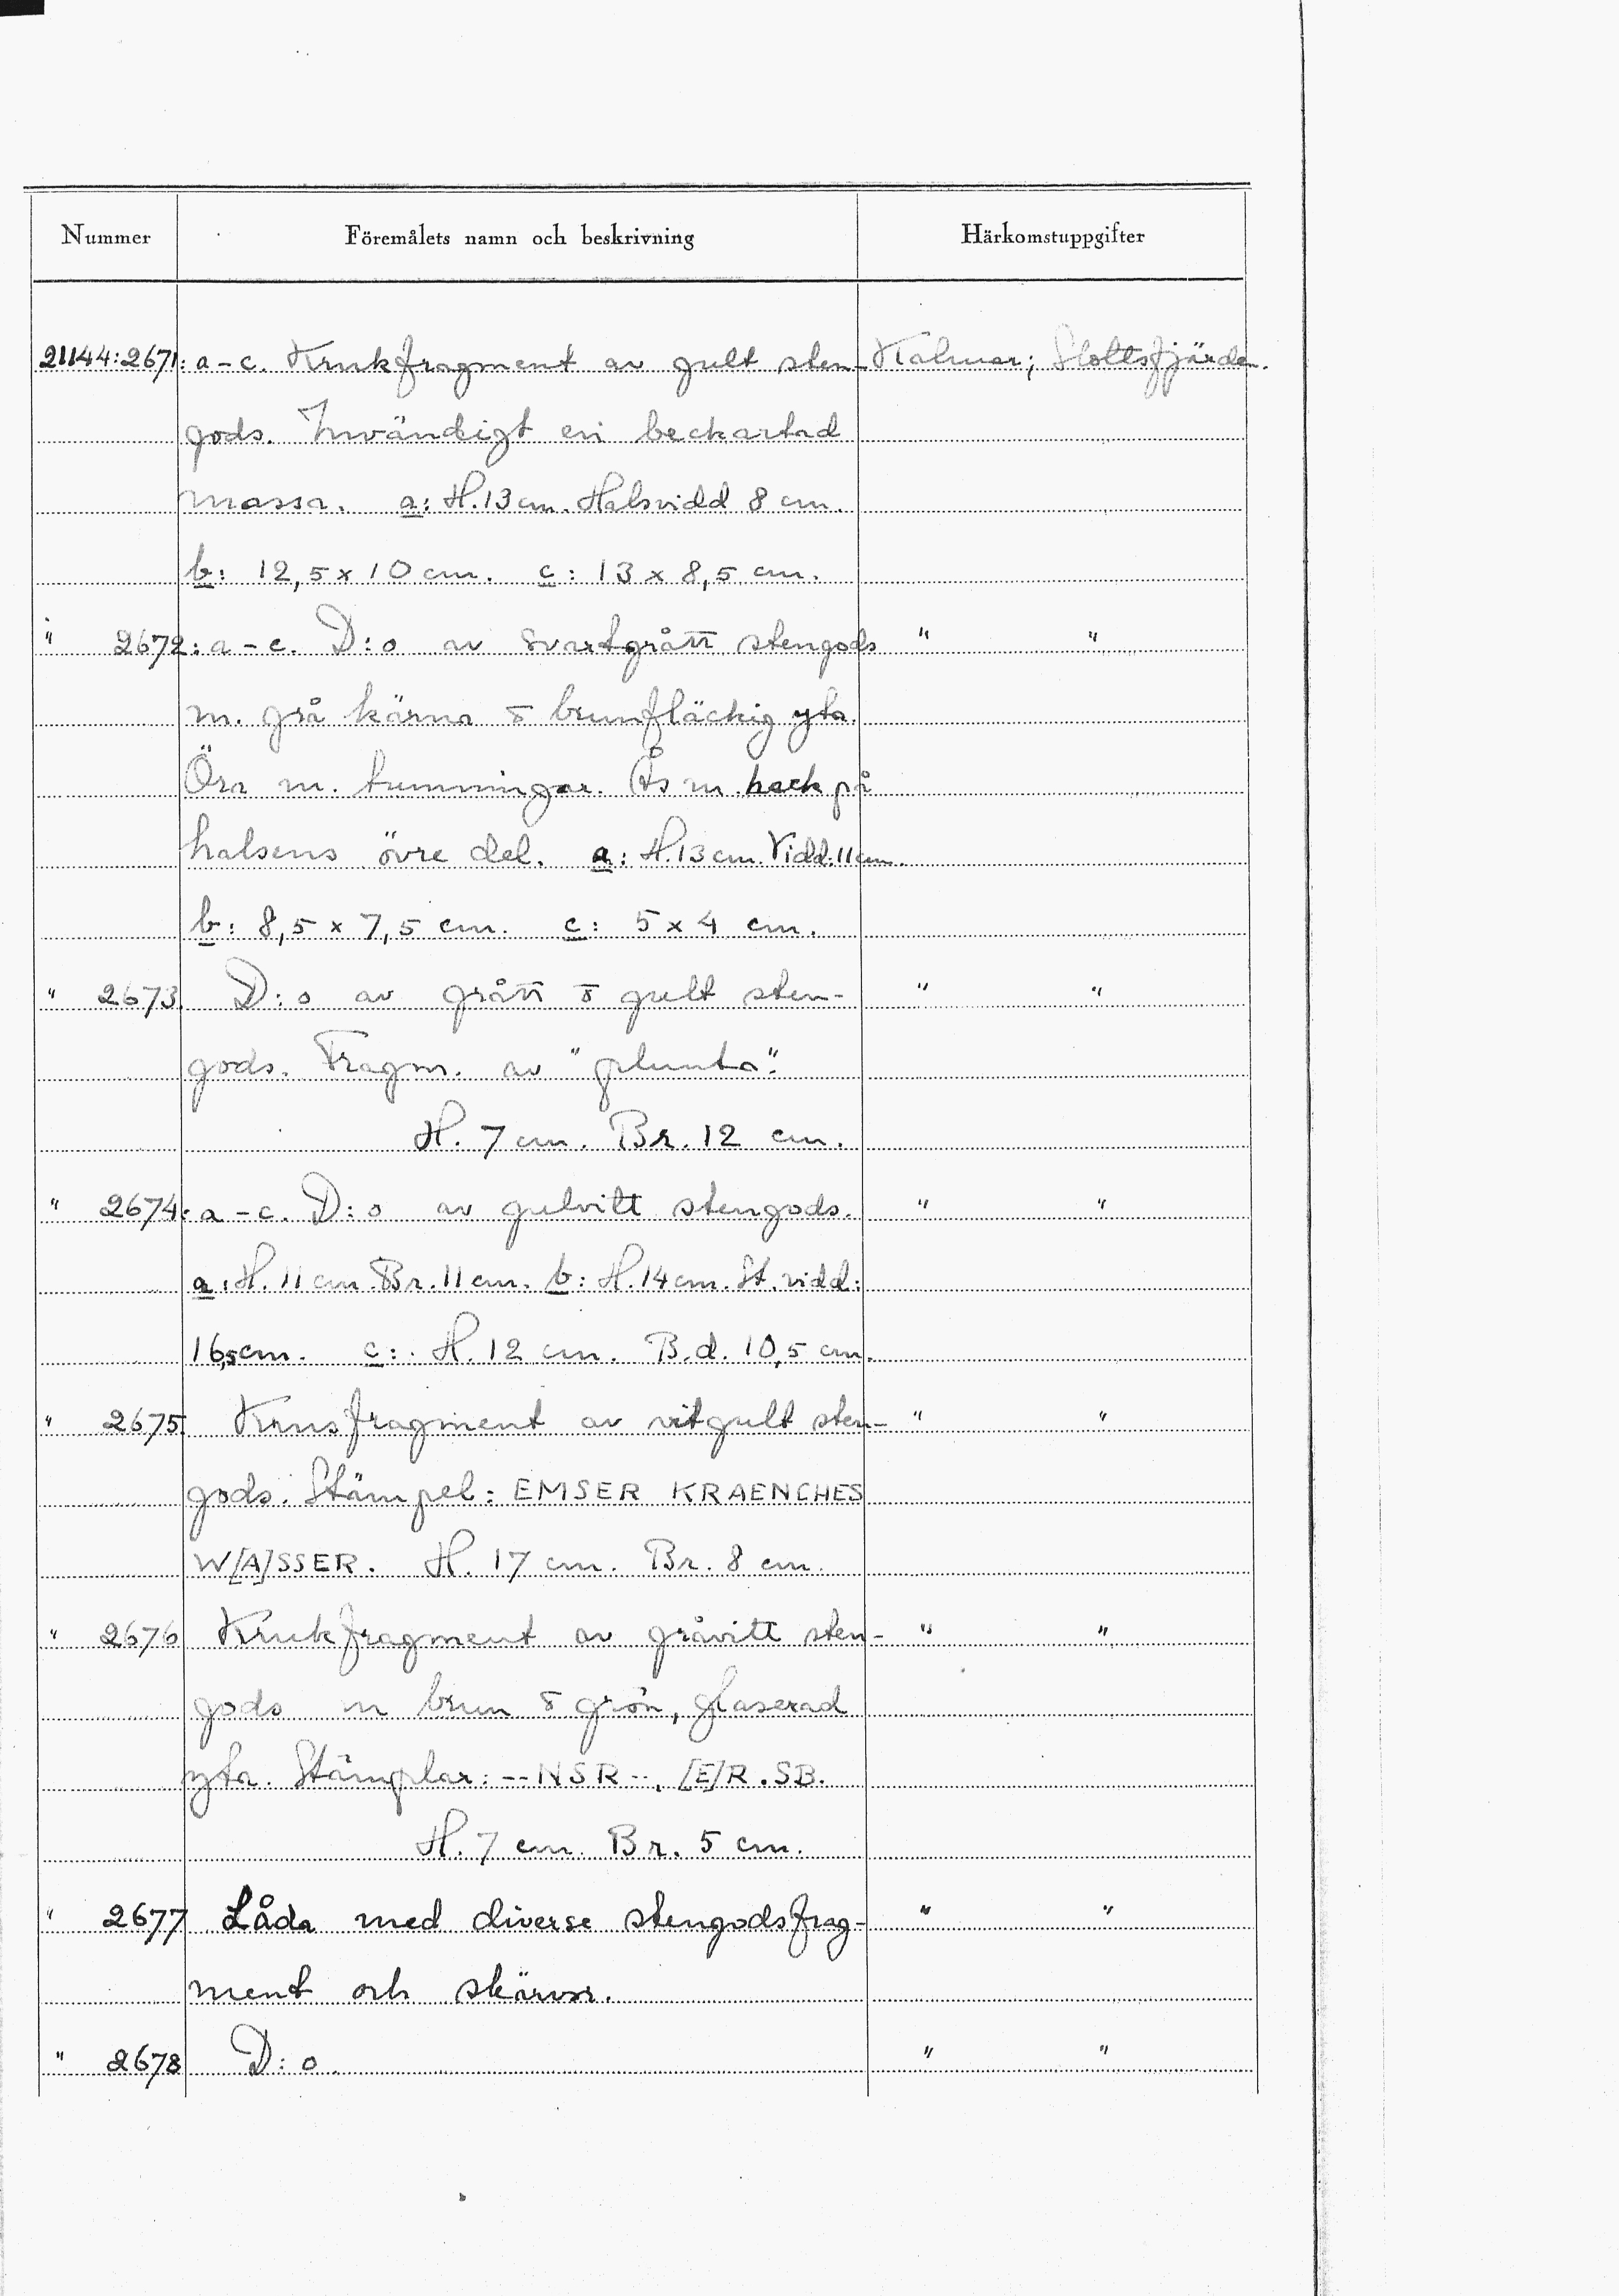 Nummer Föremålets namn och beskrivning Härkomstuppgifter
21144:2671: a-c. Krukfragment av gult sten- Kalmar; Slottsfjärden.
gods. Invändigt en beckartad
massa. a: H. 13 cm. Halsvidd 8 cm.
b: 12,5 x 10 cm. c: 13 x 8,5 cm.
" 2672: a-c. D:o av svartgrått stengods " "
m. grå kärna & brunfläckig yta.
Öra m. tumningar. Ås m. hack på
halsens övre del. a: H. 13 cm. Vidd: 11 cm.
b: 8,5 x 7,5 cm. c: 5 x 4 cm.
" 2673. D:o av grått & gult sten- " "
gods. Fragm. av "plunta".
H. 7 cm. Br. 12 cm.
" 2674: a-c. D:o av gulvitt stengods. " "
a: H. 11 cm. Br. 11 cm. b: H. 14 cm. St. vidd:
16,5 cm. c: H. 12 cm. B.d. 10,5 cm.
" 2675. Krusfragment av vitgult sten- " "
gods. Stämpel: EMSER KRAENCHES
W[A]SSER. H. 17 cm. Br. 8 cm.
" 2676 Krukfragment av gråvitt sten- " "
gods m brun & grön, glaserad
yta. Stämplar: --NSR--, [E]R.SB.
H. 7 cm. Br. 5 cm.
" 2677 Låda med diverse stengodsfrag- " "
ment och skärvor.
" 2678 D:o. " "